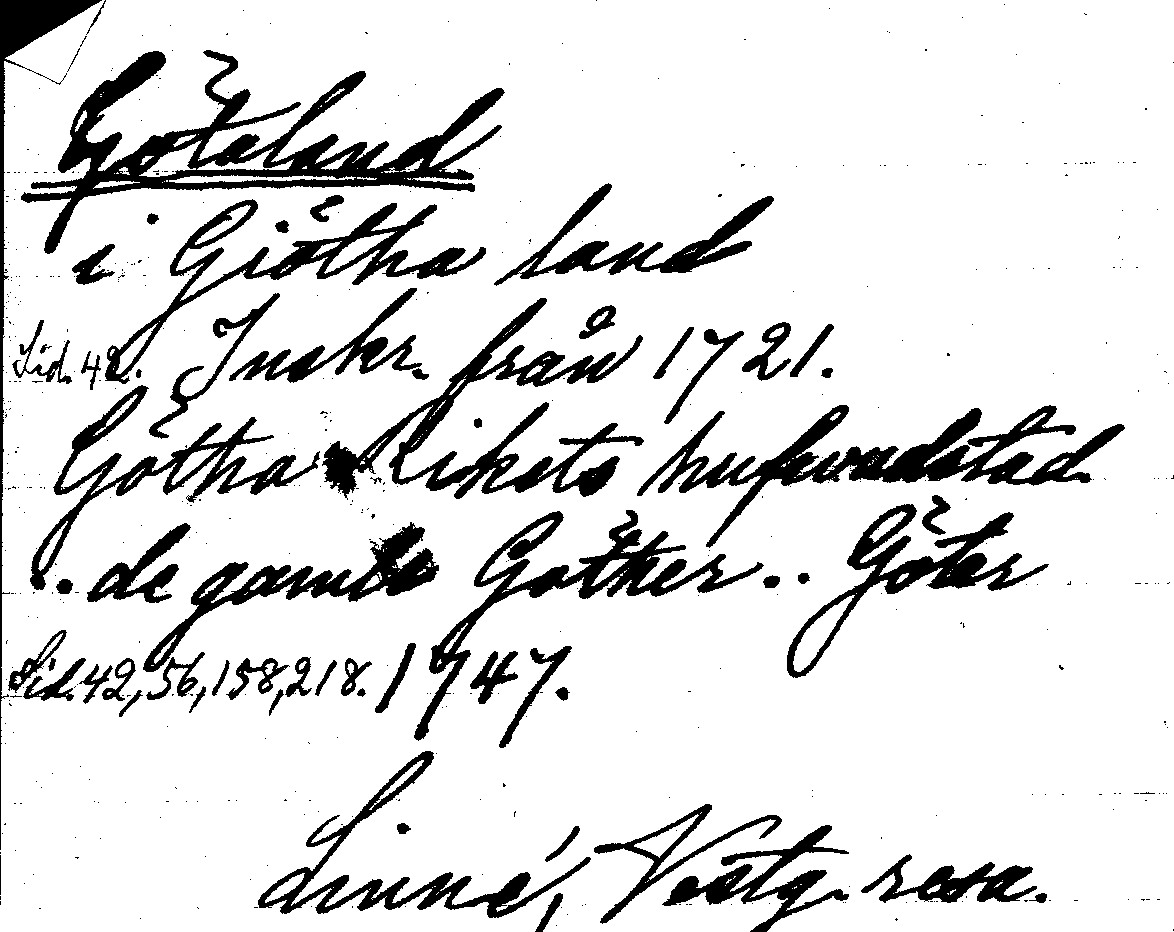 Götaland
i Giötha land
Sid. 42. Inskr. från 1721.
Götha Rikets hufwudstad
.. de gamle Göther .. Göter
Sid. 42, 56, 158, 218. 1747.
Linné, Vestg. resa.